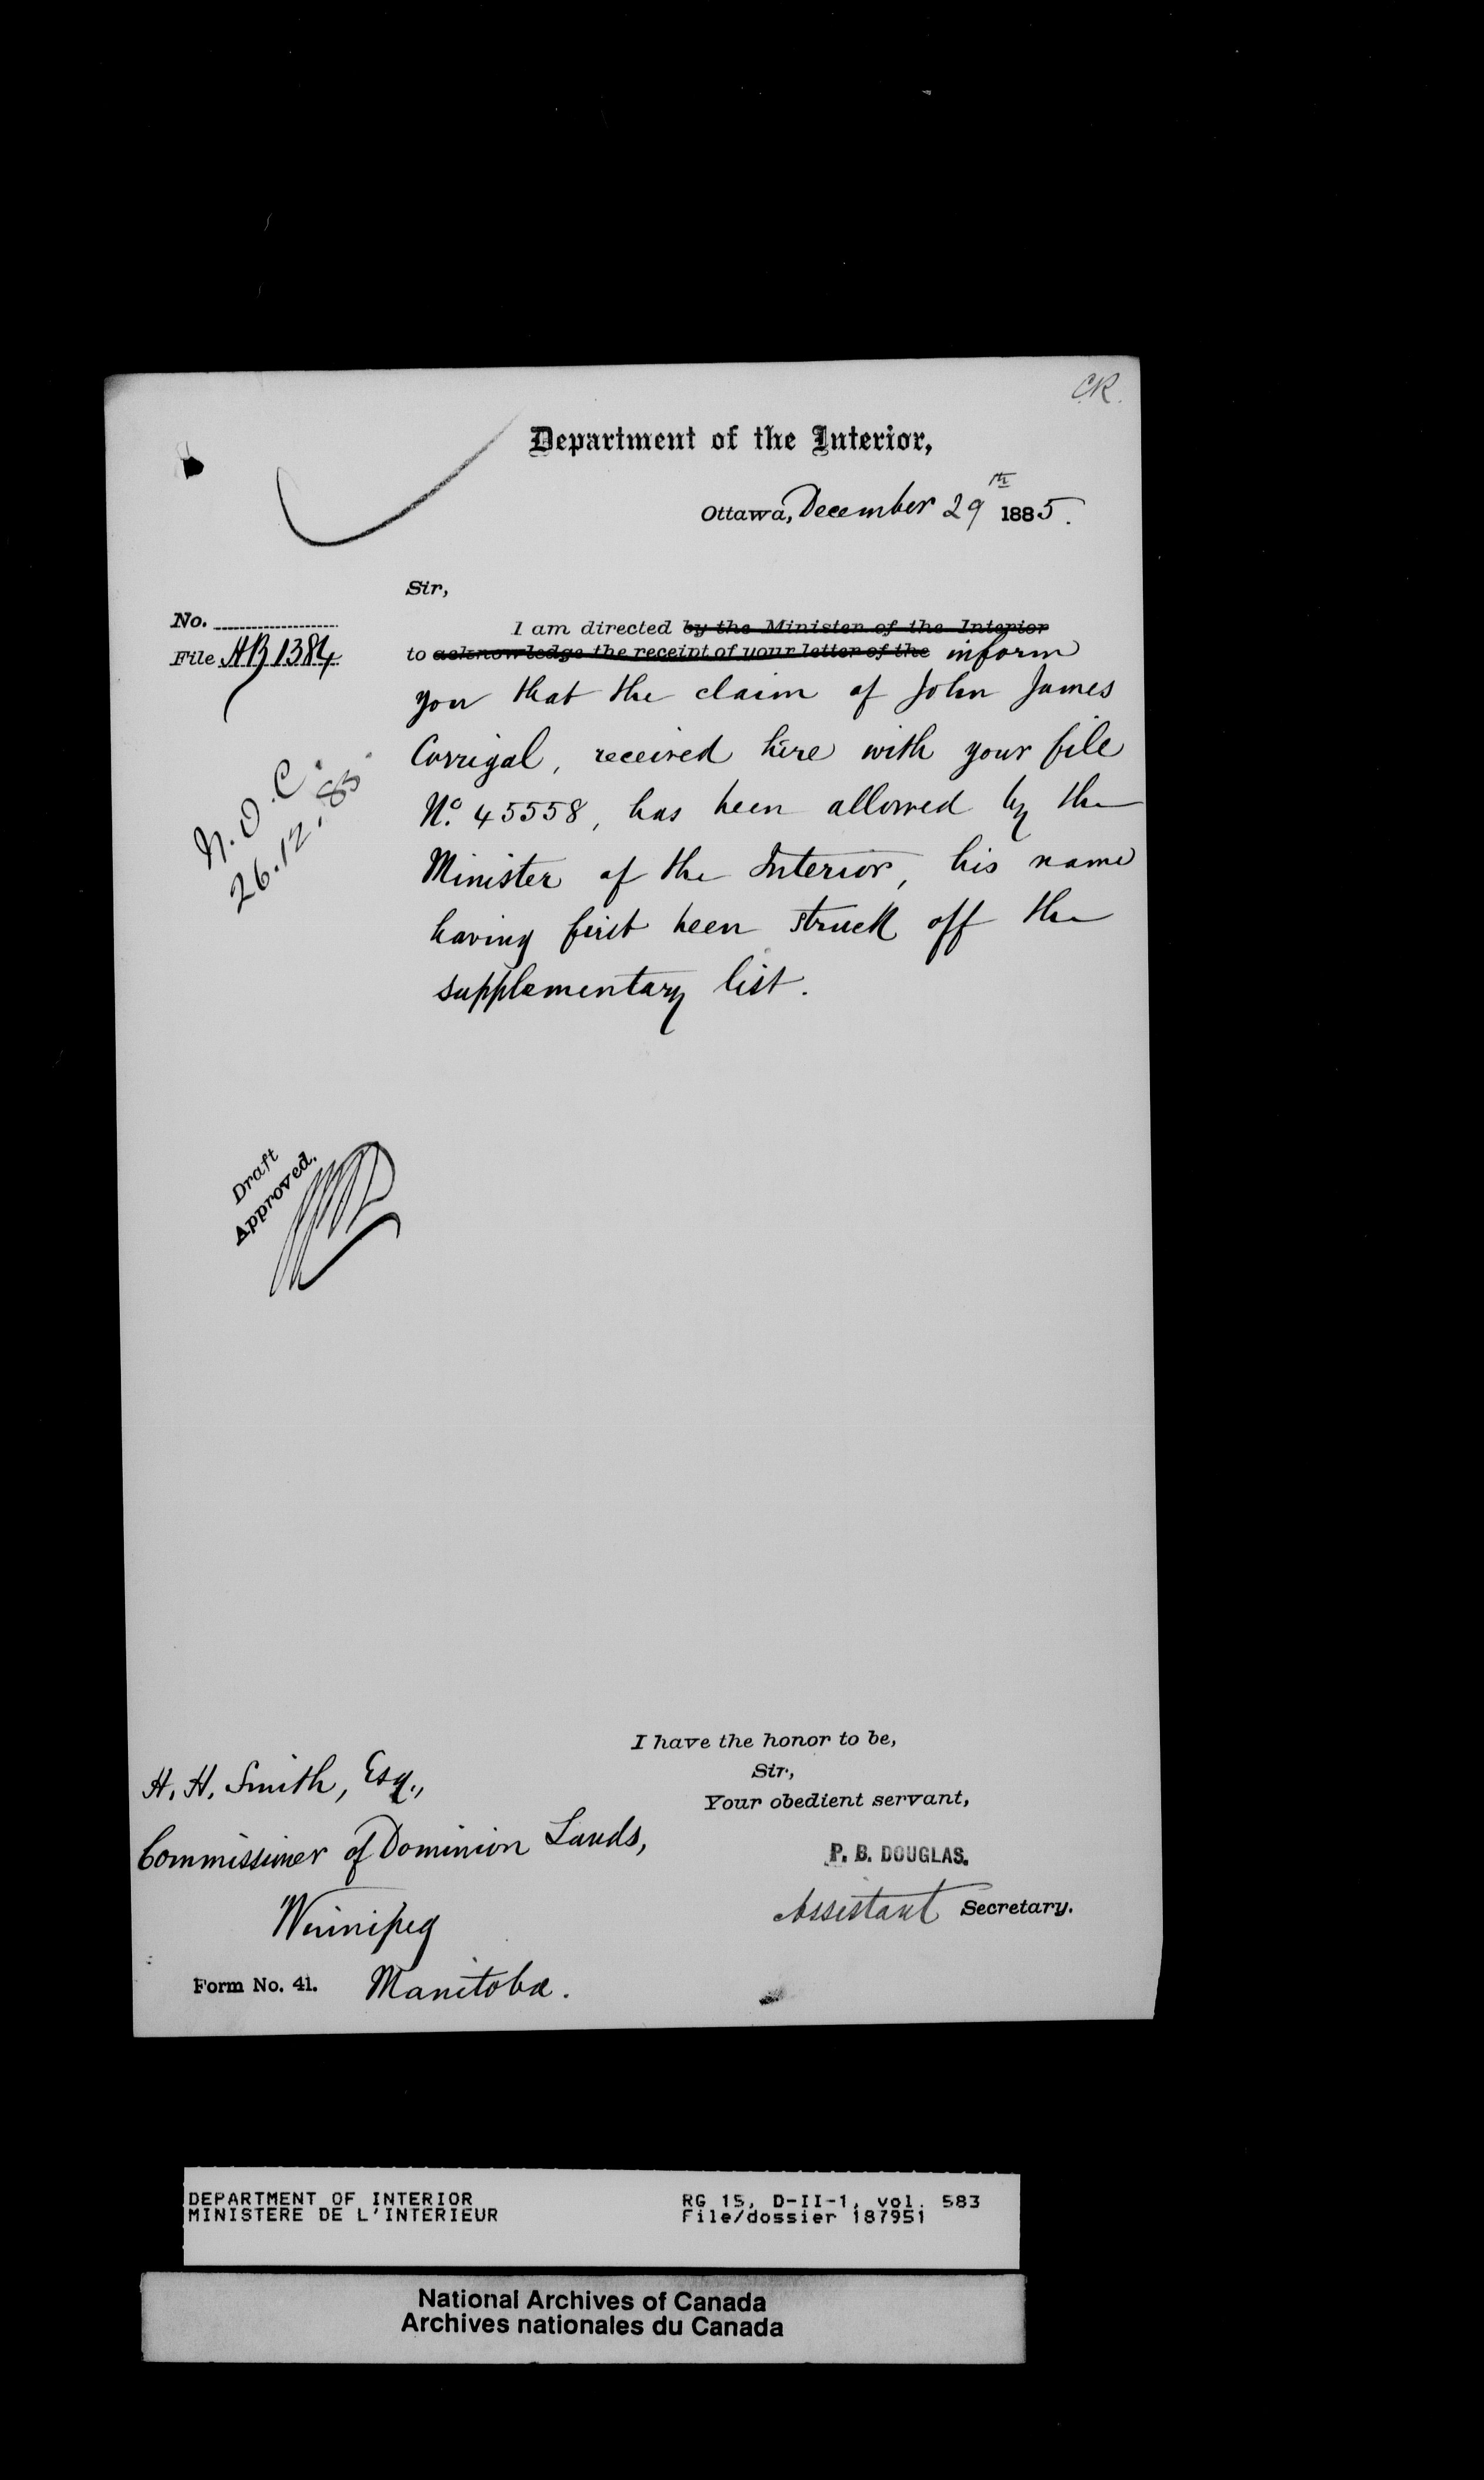 C.R.
Department of the Interior,
Ottawa, December 29th 1885.
Sir,
No.
File HB 1384
I am directed by the Minister of the Interior
to acknowledge the receipt of your letter of the inform
you that the claim of John James
Corrigal, received here with your file
No. 45558, has been allowed by the
Minister of the Interior, his name
having first been struck off the
supplementary list.
N.O.C.
26.12.85.
Draft
Approved.
I have the honor to be,
Sir,
Your obedient servant,
P. B. DOUGLAS.
Assistant Secretary.
H. H. Smith, Esq.,
Commissioner of Dominion Lands,
Winnipeg
Manitoba.
Form No. 41.
DEPARTMENT OF INTERIOR
MINISTERE DE L'INTERIEUR
RG 15, D-II-1, vol. 583
File/dossier 187951
National Archives of Canada
Archives nationales du Canada